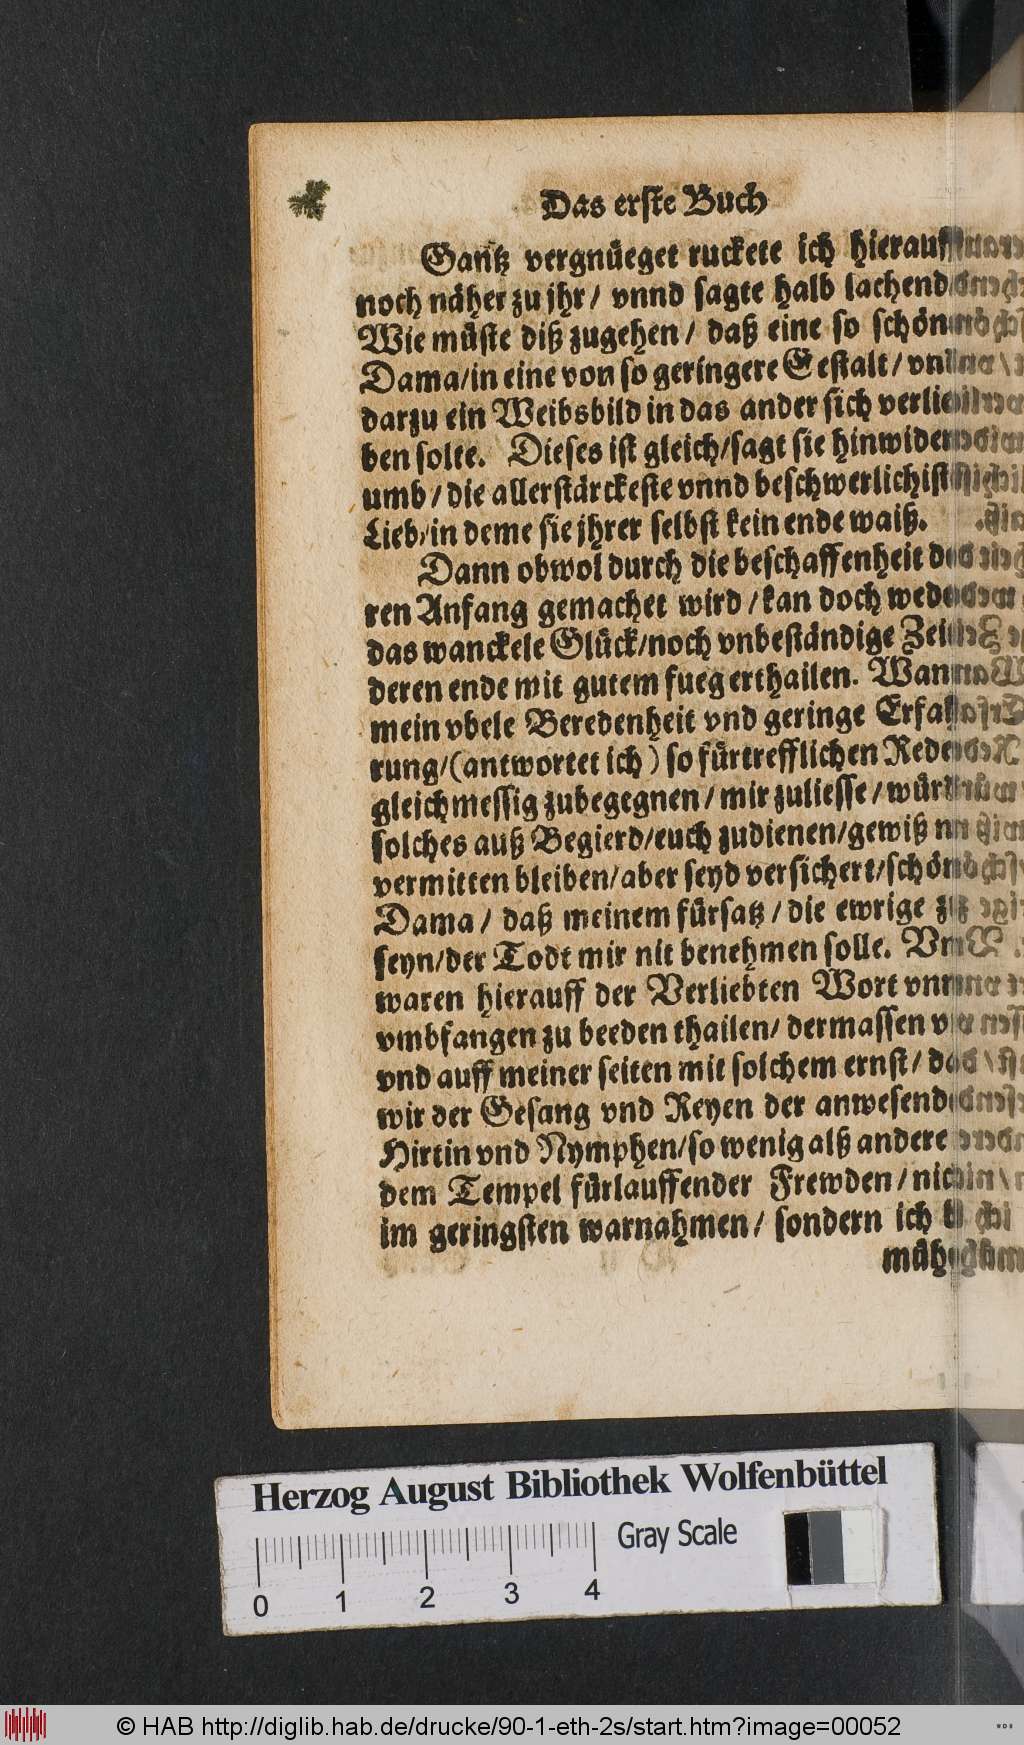 Das erste Buch
Gantz vergnüeget ruckete ich hierauff
noch näher zu jhr / vnnd sagte halb lachend
Wie müste diß zugehen / daß eine so schöne
Dama/in eine von so geringere Gestalt / vnd
darzu ein Weibsbild in das ander sich verlie
ben solte. Dieses ist gleich/sagt sie hinwider
umb / die allerstärckeste vnnd beschwerlichist
Lieb/in deme sie jhrer selbst kein ende waiß.
Dann obwol durch die beschaffenheit de
ren Anfang gemachet wird / kan doch weder
das wanckele Glück/noch vnbeständige Zeit
deren ende mit gutem fueg erthailen. Wann
mein vbele Beredenheit vnd geringe Erfah
rung/(antwortet ich) so fürtrefflichen Reden
gleichmessig zubegegnen / mir zuliesse / würd
solches auß Begierd/euch zudienen/gewiß nit
vermitten bleiben/aber seyd versichert/schöne
Dama / daß meinem fürsatz / die ewrige zu
seyn/der Todt mir nit benehmen solle. Vnd
waren hierauff der Verliebten Wort vnnd
vmbfangen zu beeden thailen/ dermassen vil
vnd auff meiner seiten mit solchem ernst/ das
wir der Gesang vnd Reyen der anwesenden
Hirtin vnd Nymphen/so wenig alß andere in
dem Tempel fürlauffender Frewden / nicht
im geringsten warnahmen/ sondern ich
mäh
Herzog August Bibliothek Wolfenbüttel
0 1 2 3 4 Gray Scale
© HAB http://diglib.hab.de/drucke/90-1-eth-2s/start.htm?image=00052